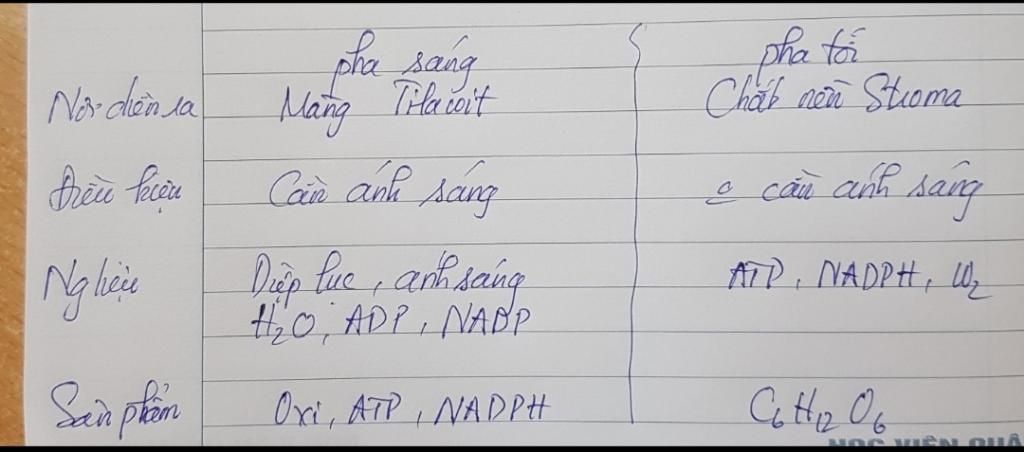 pha sáng pha tối
Nơi diễn ra Màng Tilacoit Chất nền Stroma
Điều kiện Cần ánh sáng cần ánh sáng
Ng liệu Diệp lục, ánh sáng ATP, NADPH, CO2
H2O, ADP, NADP
Sản phẩm Oxi, ATP, NADPH C6H12O6
HỌC VIỆN QUÂ